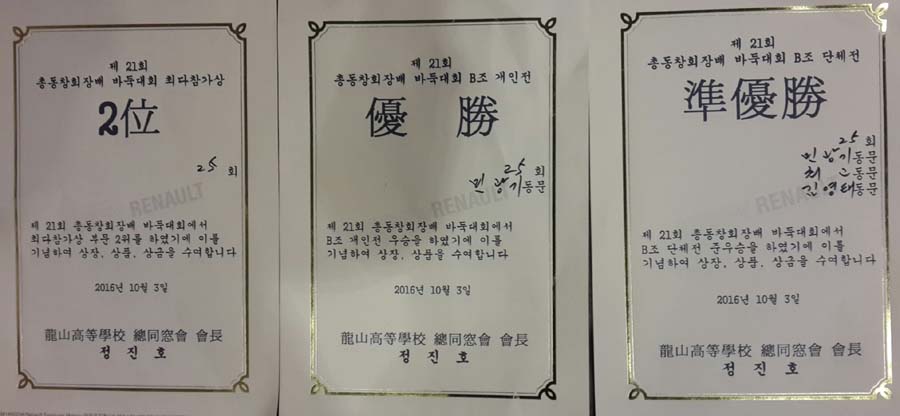 제 21회
총동창회장배 바둑대회 최다참가상
2位
25 회
RENAULT
제 21회 총동창회장배 바둑대회에서
최다참가상 부문 2위를 하였기에 이를
기념하여 상장, 상품, 상금을 수여합니다
2016년 10월 3일
龍山高等學校 總同窓會 會長
정 진 호
제 21회
총동창회장배 바둑대회 B조 개인전
優 勝
25 회
민광기동문
RENAULT
제 21회 총동창회장배 바둑대회에서
B조 개인전 우승을 하였기에 이를
기념하여 상장, 상품을 수여합니다
2016년 10월 3일
龍山高等學校 總同窓會 會長
정 진 호
제 21회
총동창회장배 바둑대회 B조 단체전
準優勝
25 회
민광기동문
최 동문
김영태동문
RENAULT
제 21회 총동창회장배 바둑대회에서
B조 단체전 준우승을 하였기에 이를
기념하여 상장, 상품, 상금을 수여합니다
2016년 10월 3일
龍山高等學校 總同窓會 會長
정 진 호